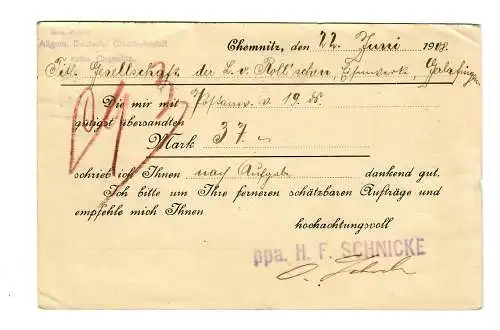 Allgem. Deutsche Credit-Anstalt
Chemnitz, den 22. Juni 1908.
Titl. Gesellschaft der L. v. Roll'schen Eisenwerke, Gerlafingen
Die mir mit Postanw. v. 19. ds.
gütigst übersandten
Mark 37.–
schrieb ich Ihnen nach Aufgabe dankend gut.
Ich bitte um Ihre ferneren schätzbaren Aufträge und
empfehle mich Ihnen
hochachtungsvoll
ppa. H. F. SCHNICKE